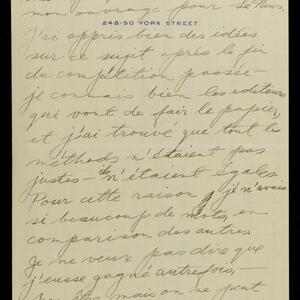 mon ouvrage pour le News.
248-50 YORK STREET.
J'ai appris bien des idées
sur ce sujet après le fin
du compétition passée—
je connais bien les editeurs
qui vont de fair le papier,
et j'ai trouvé que tout les
méthods n'étaient pas
justes— ils n'étaient égales.
Pour cette raison je n'avais
si beaucoup de mots, en
comparison des autres.
Je ne veux pas dire que
j'eusse gagné autrefois,—
mais on ne peut